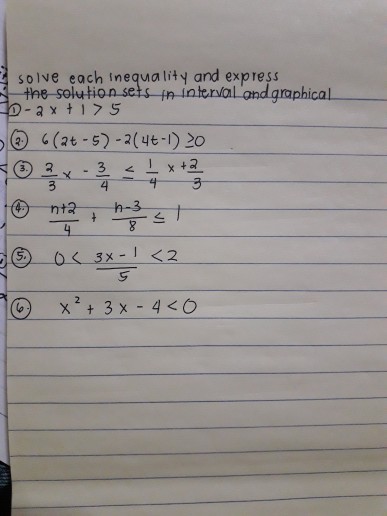 solve each inequality and express
the solution sets in interval and graphical
① -2x + 1 > 5
②. 6(2t - 5) - 2(4t - 1) ≥ 0
③. 2/3 x - 3/4 ≤ 1/4 x + 2/3
④. n+2/4 + n-3/8 ≤ 1
⑤. 0 < 3x - 1/5 < 2
⑥. x² + 3x - 4 < 0